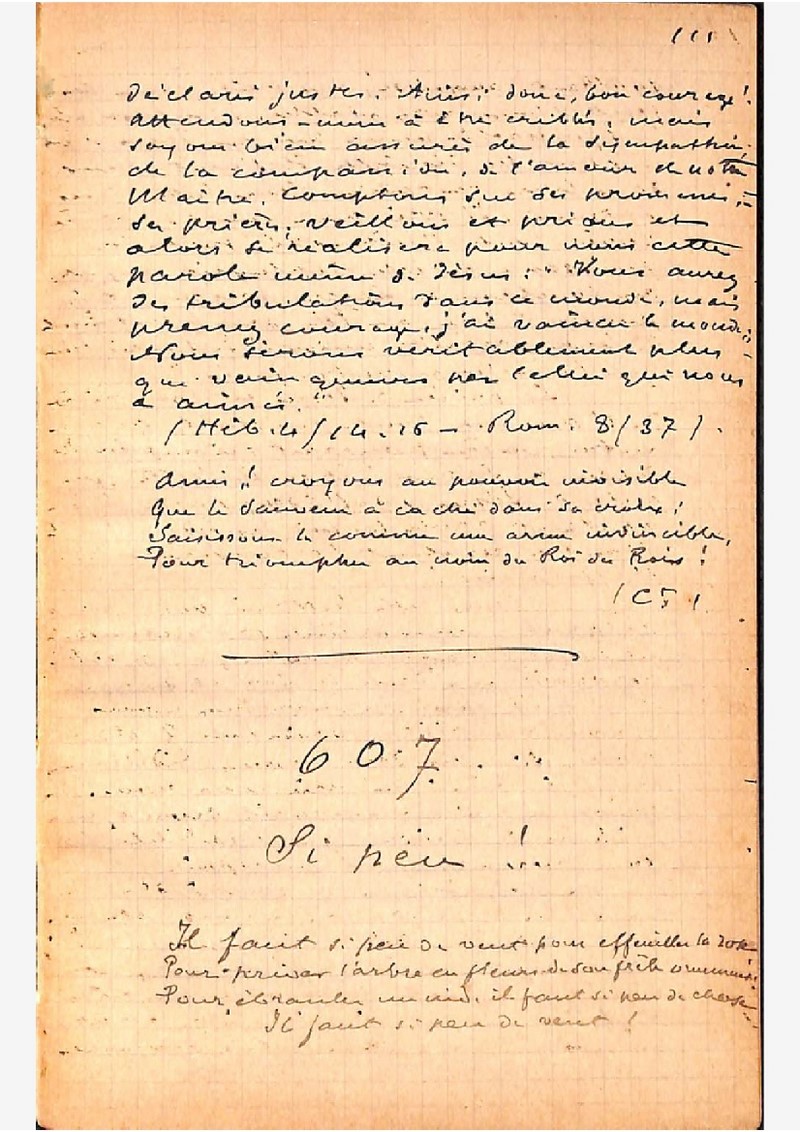 111
déclarés justes. Ainsi donc, bon courage !
Attendons-nous à être criblés, mais
soyons bien assurés de la sympathie,
de la compassion, de l'amour de notre
Maître. Comptons sur ses promesses,
ses prières, veillons et prions et
alors se réalisera pour nous cette
parole même de Jésus : "Vous aurez
des tribulations dans ce monde, mais
prenez courage, j'ai vaincu le monde"
Nous serons véritablement plus
que vainqueurs par Celui qui nous
a aimés."
(Héb. 4/14.16 - Rom. 8/37).
Amis ! croyons au pouvoir invisible
Que le Sauveur a caché dans sa croix ;
Saisissons la comme une arme invincible,
Pour triompher au nom du Roi des Rois !
(CT)
607
Si peu !
Il faut si peu de vent pour effeuiller la rose
Pour priver l'arbre en fleurs de son frêle ornement
Pour ébranler un nid, il faut si peu de chose
Il faut si peu de vent !